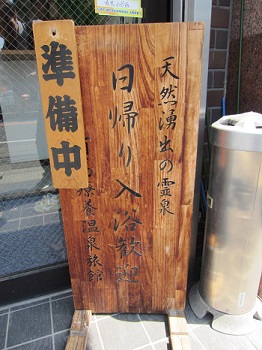 準備中
天然湧出の霊泉
日帰り入浴歓迎
療養温泉旅館